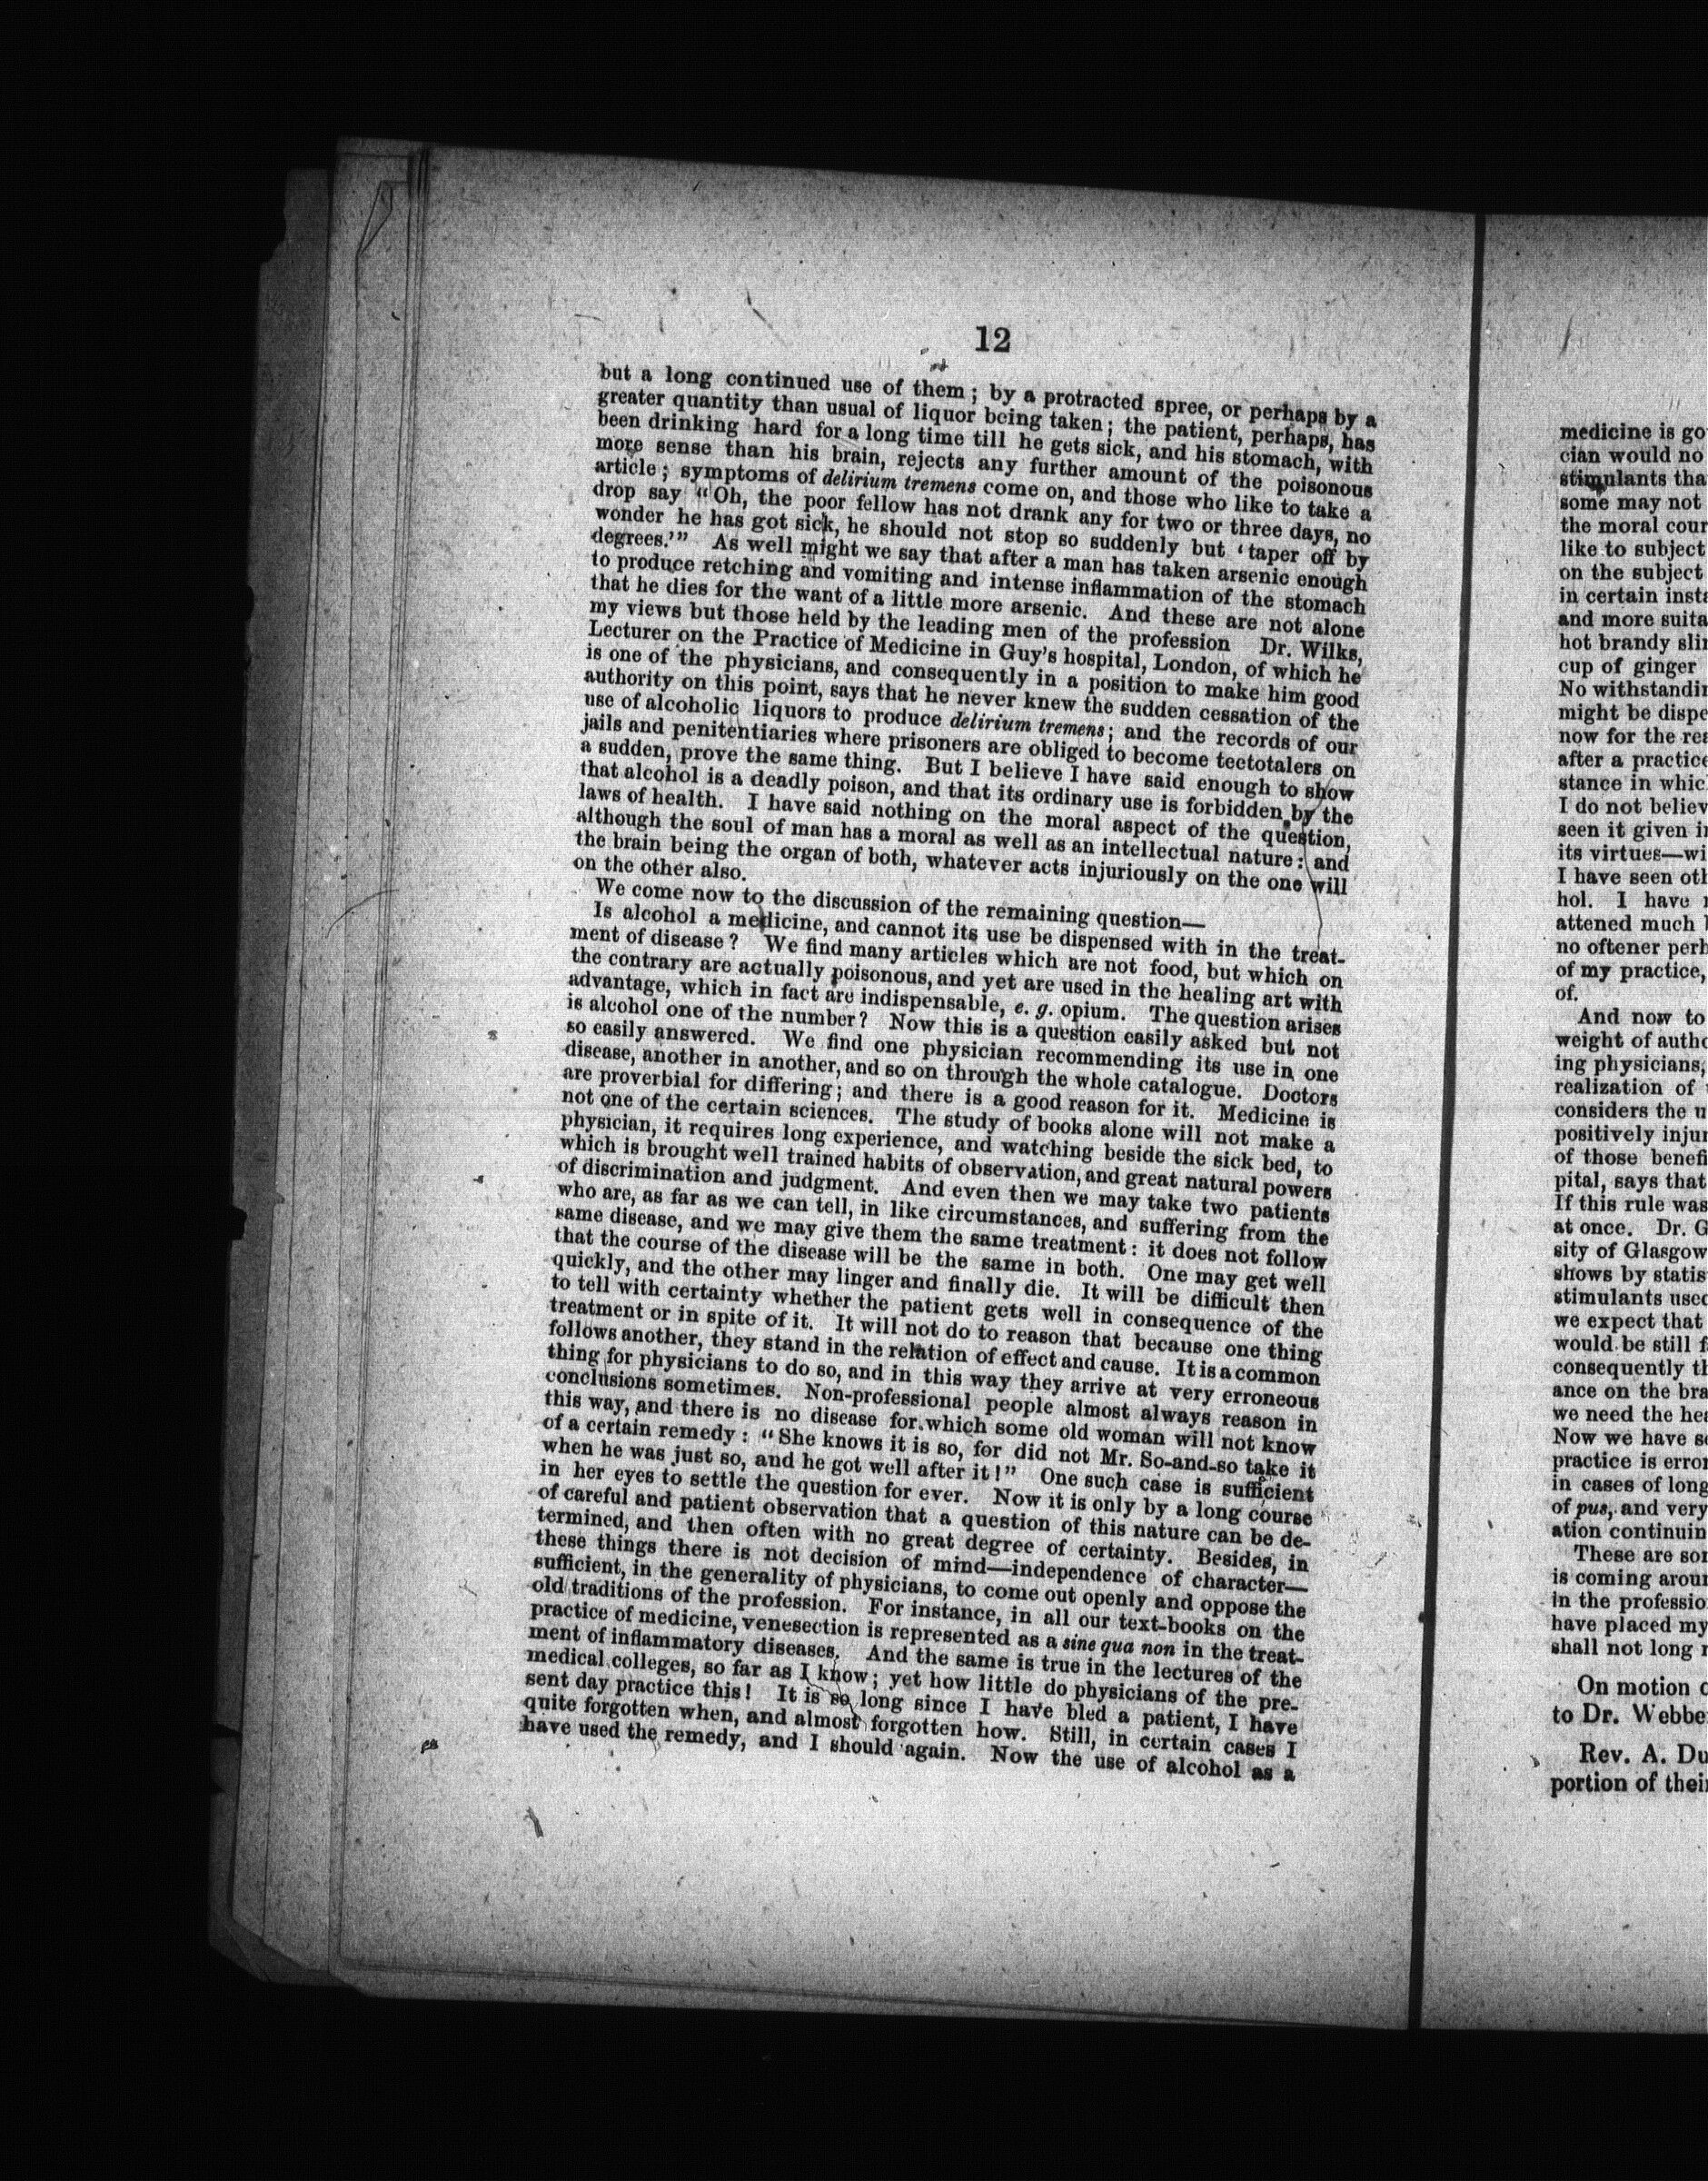 12
but a long continued use of them; by a protracted spree, or perhaps by a
greater quantity than usual of liquor being taken; the patient, perhaps, has
been drinking hard for a long time till he gets sick, and his stomach, with
more sense than his brain, rejects any further amount of the poisonous
article; symptoms of delirium tremens come on, and those who like to take a
drop say "Oh, the poor fellow has not drank any for two or three days, no
wonder he has got sick, he should not stop so suddenly but 'taper off by
degrees.'" As well might we say that after a man has taken arsenic enough
to produce retching and vomiting and intense inflammation of the stomach
that he dies for the want of a little more arsenic. And these are not alone
my views but those held by the leading men of the profession Dr. Wilks,
Lecturer on the Practice of Medicine in Guy's hospital, London, of which he
is one of the physicians, and consequently in a position to make him good
authority on this point, says that he never knew the sudden cessation of the
use of alcoholic liquors to produce delirium tremens; and the records of our
jails and penitentiaries where prisoners are obliged to become tectotalers on
a sudden, prove the same thing. But I believe I have said enough to show
that alcohol is a deadly poison, and that its ordinary use is forbidden by the
laws of health. I have said nothing on the moral aspect of the question,
although the soul of man has a moral as well as an intellectual nature: and
the brain being the organ of both, whatever acts injuriously on the one will
on the other also.
We come now to the discussion of the remaining question—
Is alcohol a medicine, and cannot its use be dispensed with in the treat-
ment of disease? We find many articles which are not food, but which on
the contrary are actually poisonous, and yet are used in the healing art with
advantage, which in fact are indispensable, e. g. opium. The question arises
is alcohol one of the number? Now this is a question easily asked but not
so easily answered. We find one physician recommending its use in one
disease, another in another, and so on through the whole catalogue. Doctors
are proverbial for differing; and there is a good reason for it. Medicine is
not one of the certain sciences. The study of books alone will not make a
physician, it requires long experience, and watching beside the sick bed, to
which is brought well trained habits of observation, and great natural powers
of discrimination and judgment. And even then we may take two patients
who are, as far as we can tell, in like circumstances, and suffering from the
same disease, and we may give them the same treatment: it does not follow
that the course of the disease will be the same in both. One may get well
quickly, and the other may linger and finally die. It will be difficult then
to tell with certainty whether the patient gets well in consequence of the
treatment or in spite of it. It will not do to reason that because one thing
follows another, they stand in the relation of effect and cause. It is a common
thing for physicians to do so, and in this way they arrive at very erroneous
conclusions sometimes. Non-professional people almost always reason in
this way, and there is no disease for which some old woman will not know
of a certain remedy: "She knows it is so, for did not Mr. So-and-so take it
when he was just so, and he got well after it!" One such case is sufficient
in her eyes to settle the question for ever. Now it is only by a long course
of careful and patient observation that a question of this nature can be de-
termined, and then often with no great degree of certainty. Besides, in
these things there is not decision of mind—independence of character—
sufficient, in the generality of physicians, to come out openly and oppose the
old traditions of the profession. For instance, in all our text-books on the
practice of medicine, venesection is represented as a sine qua non in the treat-
ment of inflammatory diseases. And the same is true in the lectures of the
medical colleges, so far as I know; yet how little do physicians of the pre-
sent day practice this! It is so long since I have bled a patient, I have
quite forgotten when, and almost forgotten how. Still, in certain cases I
have used the remedy, and I should again. Now the use of alcohol as a
medicine is go
cian would no
stimulants tha
some may not
the moral cour
like to subject
on the subject
in certain insta
and more suita
hot brandy slin
cup of ginger
No withstandin
might be dispe
now for the rea
after a practice
stance in whic
I do not believ
seen it given in
its virtues—wi
I have seen oth
hol. I have
attened much
no oftener perh
of my practice,
of.
And now to
weight of autho
ing physicians,
realization of
considers the u
positively injur
of those benefi
pital, says that
If this rule was
at once. Dr. G
sity of Glasgow
shows by statis
stimulants used
we expect that
would be still f
consequently th
ance on the bra
we need the hea
Now we have s
practice is error
in cases of long
of pus, and very
ation continuin
These are so
is coming aroun
in the professio
have placed my
shall not long
On motion o
to Dr. Webbe
Rev. A. Du
portion of thei